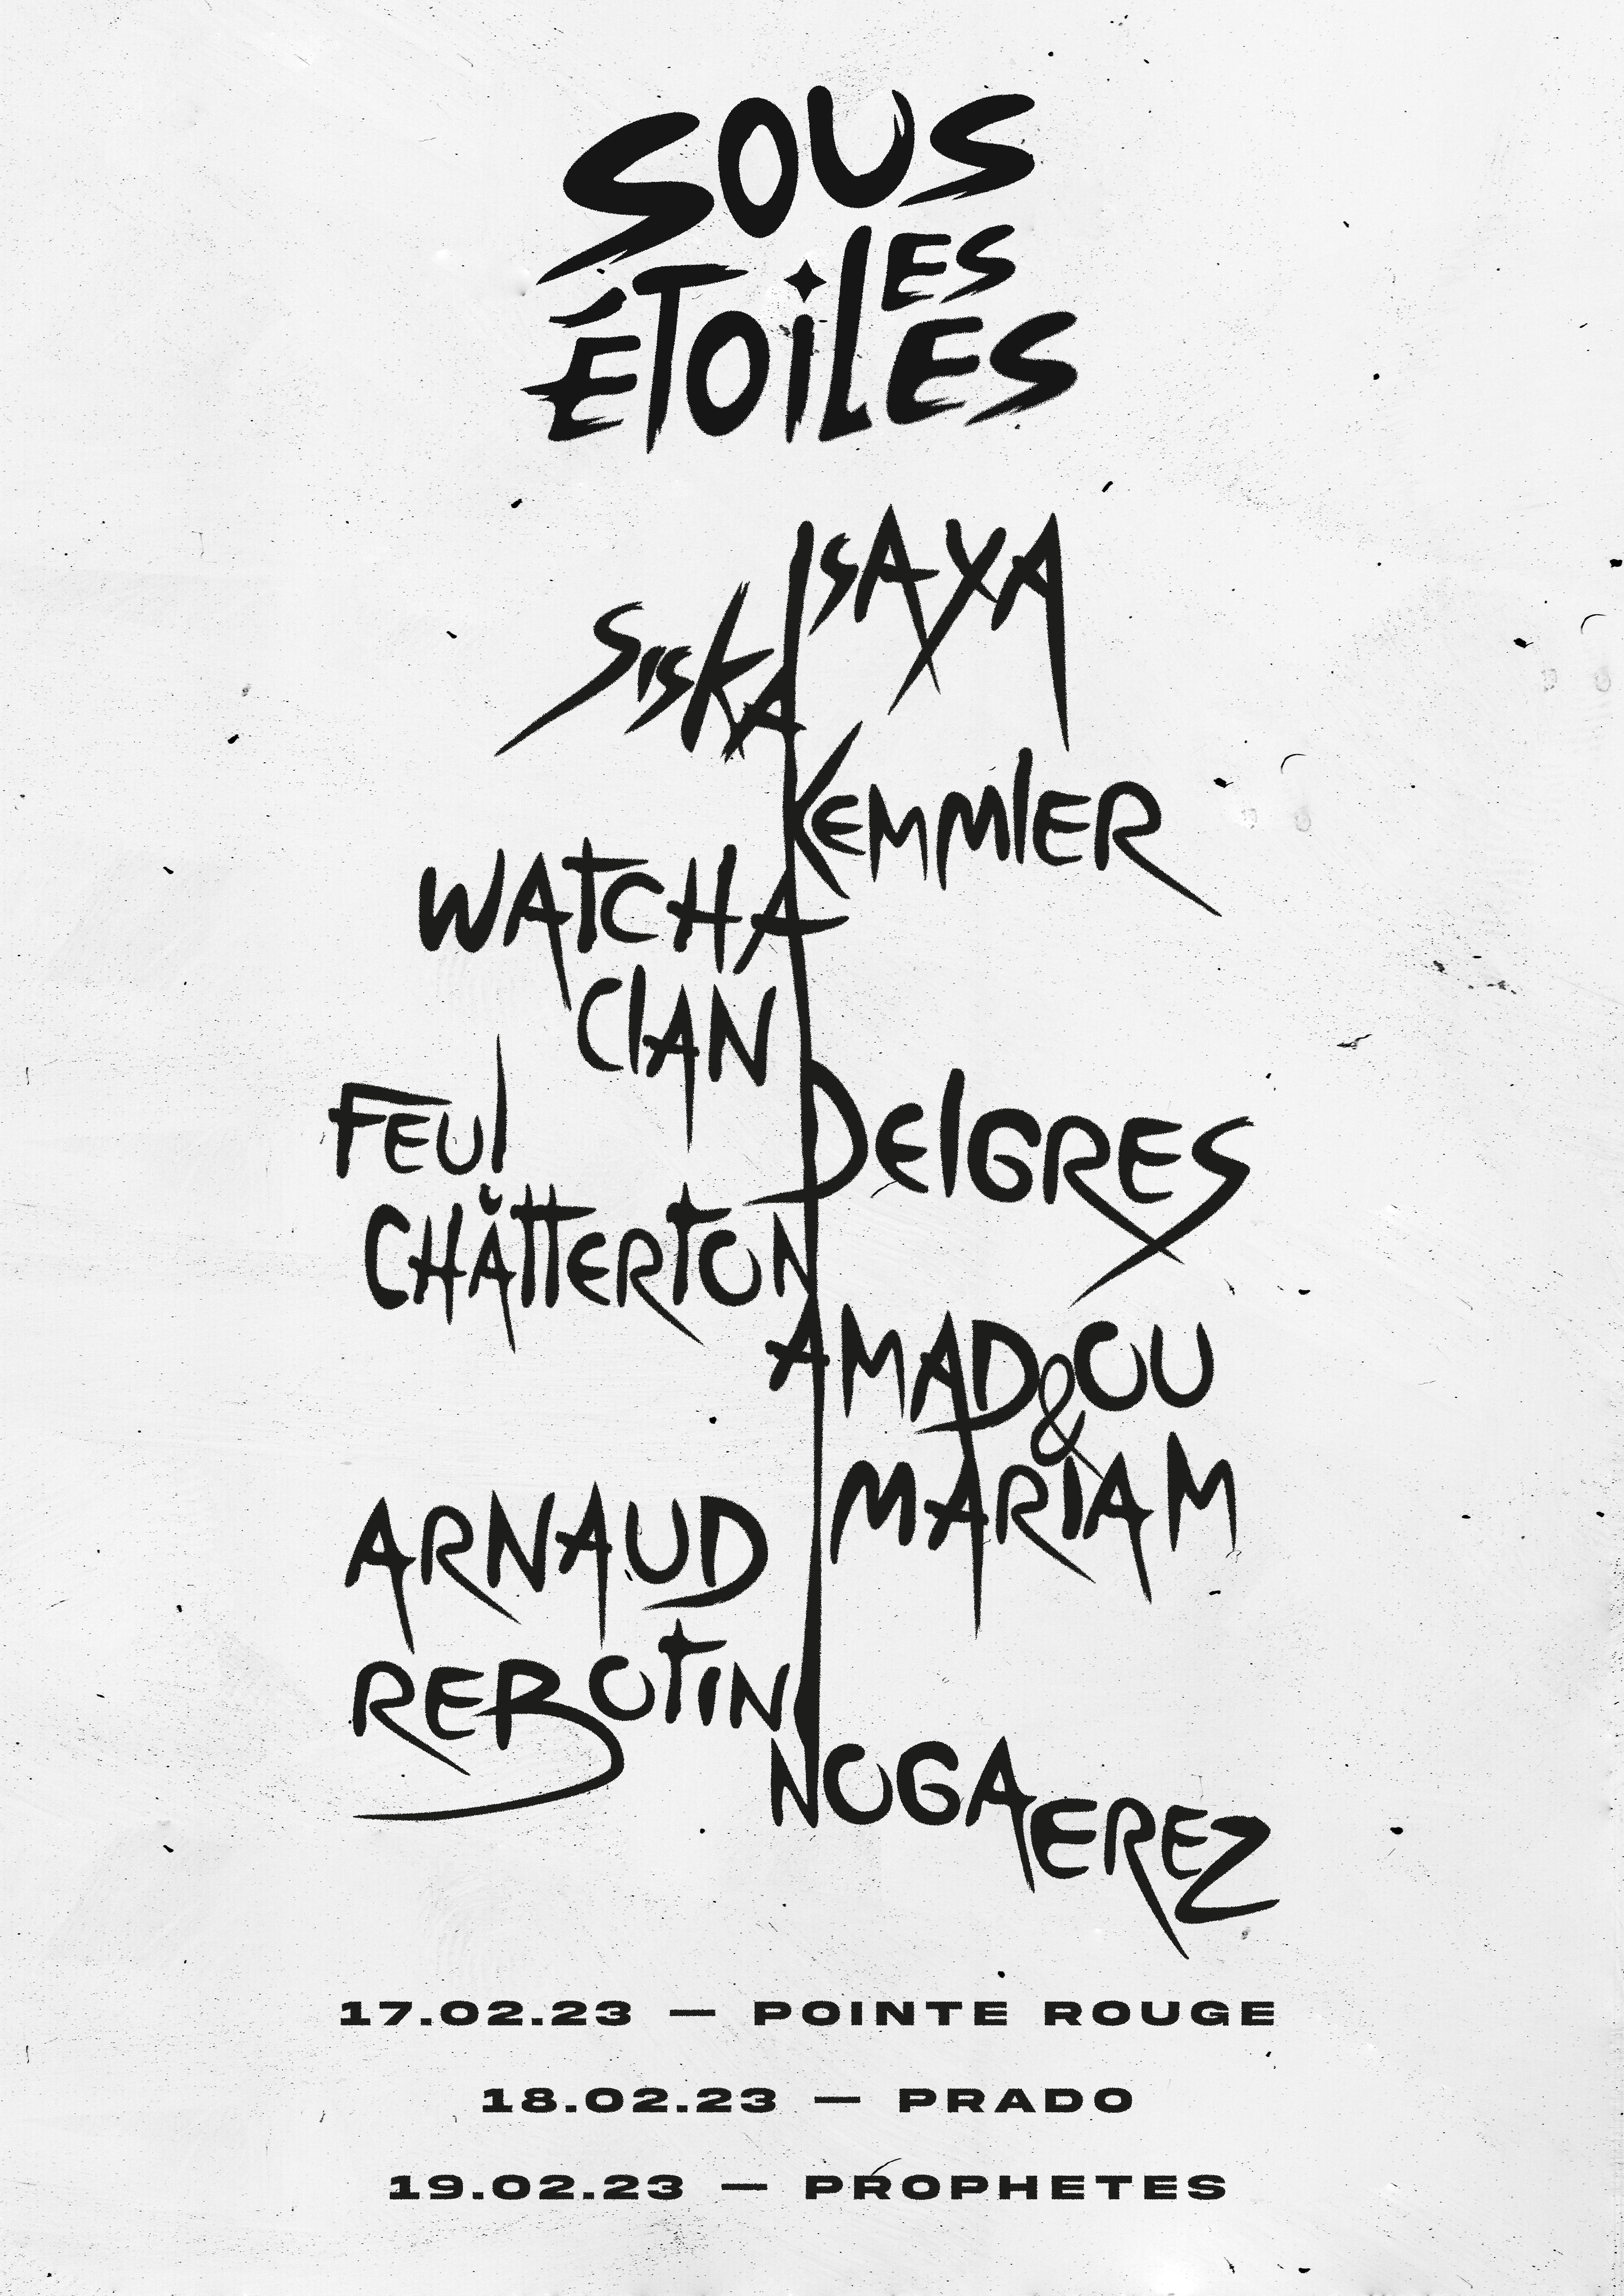 SOUS
LES
ÉTOILES
ISAYA
SISKA
KEMMLER
WATCHA
CLAN
FEU!
CHATTERTON
DELGRES
AMADOU
&
MARIAM
ARNAUD
REBOTINI
NOGA EREZ
17.02.23 — POINTE ROUGE
18.02.23 — PRADO
19.02.23 — PROPHETES